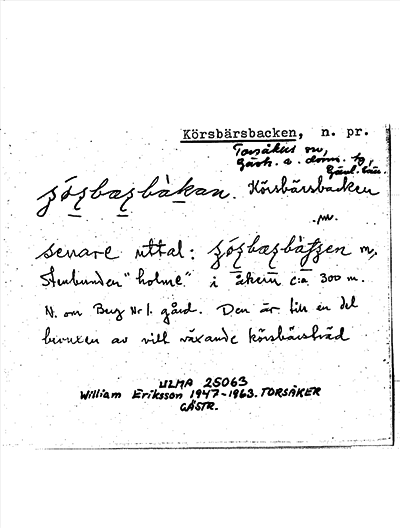 Körsbärsbacken, n. pr.
Torsåkers sn,
Gästr. ö. doms. hg,
Gävl. län.
Körsbärsbacken
senare uttal: m,
Stenbunden "holme" i åkern c:a 300 m.
N. om Berg Nr 1. gård. Den är till en del
bevuxen av vilt växande körsbärsträd
ULMA 25063
William Eriksson 1947-1963. TORSÅKER
GÄSTR.